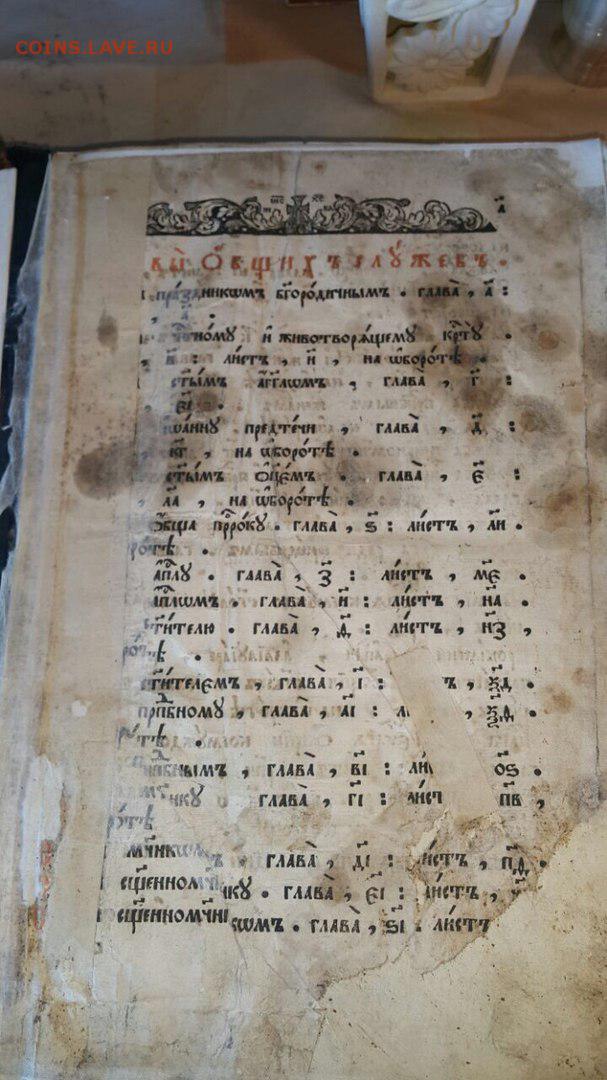 COINS.LAVE.RU
І҃С Х҃С а҃
вы́й О҆́бщихъ слꙋ́жебъ .
пра́здникѡмъ бг҃оро́дичнымъ . глава̀ , а҃ :
, а҃ .
чⷭ҇тно́мꙋ и҆ животворѧ́щемꙋ крⷭ҇тꙋ̀ .
, в҃ : ли́стъ , и҃ , на ѡ҆боро́тѣ .
ст҃ы́мъ а҆́гг҃лѡмъ , глава̀ , г҃ :
, в҃і .
і҆ѡа́ннꙋ предте́чи , глава̀ , д҃ :
к҃г , на ѡ҆боро́тѣ .
ст҃ы́мъ ѻ҆ц҃є́мъ . глава̀ , є҃ :
, л҃а , на ѡ҆боро́тѣ .
о҆́бща прⷪ҇ро́кꙋ . глава̀ , ѕ҃ : ли́стъ , л҃и .
ро́тѣ .
а҆пⷭ҇лꙋ . глава̀ , з҃ : ли́стъ , м҃є .
а҆пⷭ҇лѡмъ . глава̀ , и҃ : ли́стъ , н҃а .
ст҃и́телю . глава̀ , ѳ҃ : ли́стъ , н҃з ,
ро́тѣ .
ст҃и́телємъ , глава̀ , і҃ : ъ , ѯ҃д .
прпⷣбному , глава̀ , а҃і : ли , ѯ҃ѳ .
ро́тѣ .
бнымъ , глава̀ , в҃і : ли о҃ѕ .
нкꙋ глава̀ , г҃і : лист п҃в ,
ро́тѣ
мч҃нікѡмъ . глава̀ , д҃і : ли́стъ , п҃ѳ .
сщ҃енномч҃нкꙋ . глава̀ , є҃і : ли́стъ ,
сщ҃енномч҃нікѡмъ . глава̀ , ѕ҃і : ли́стъ